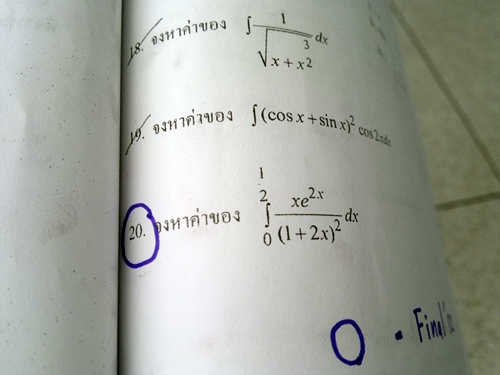 18. จงหาค่าของ ∫ 1/√(x + x^(3/2)) dx
19. จงหาค่าของ ∫ (cos x + sin x)² cos 2x dx
20. จงหาค่าของ ∫₀^(1/2) xe^(2x)/(1 + 2x)² dx